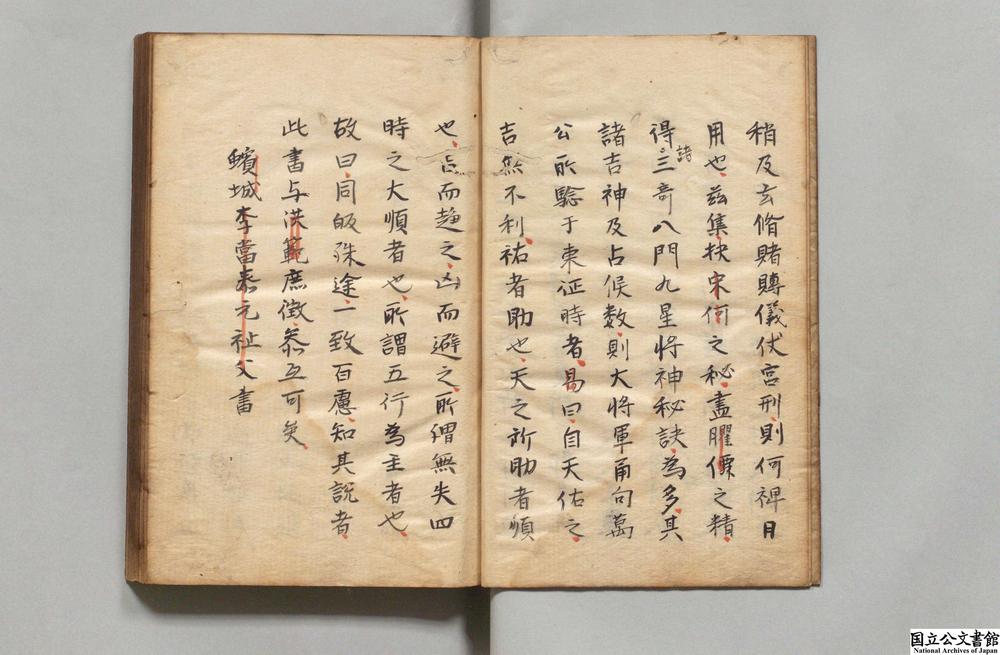 稍及玄脩賭轉儀伏宮刑則何裨日
用也、茲集抉宋何之秘、盡臞僊之精、
得諸三奇八門九星將神秘訣、為多、其
諸吉神及占候数、則大將軍甬句萬
公所驗于東征時者、易曰、自天佑之、
吉無不利、祐者助也、天之所助者順
也、吉而趋之、凶而避之、所謂無失四
時之大順者也、所謂五行為主者也、
故曰、同皈殊途、一致百慮、知其說者、
此書与洪範庶徵、叅互可矣、
蠙城李當泰元祉父書
国立公文書館
National Archives of Japan